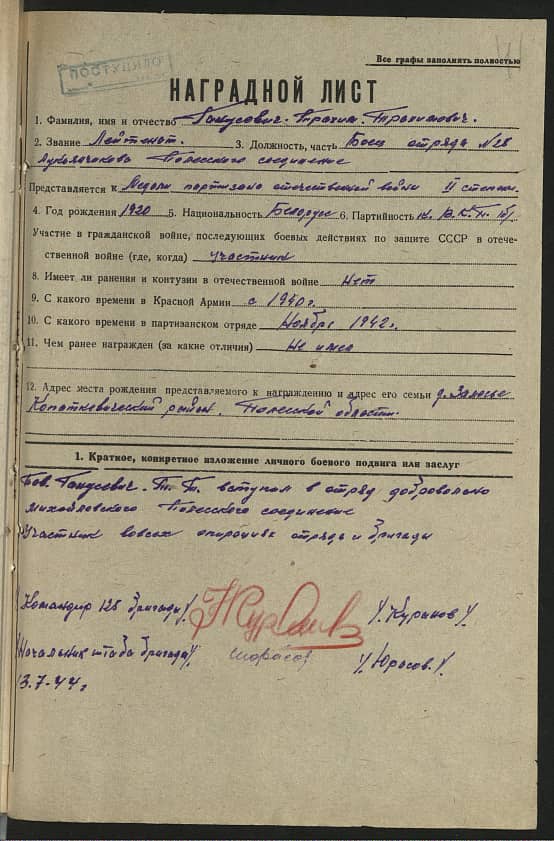 Все графы заполнять полностью
ПОСТУПИЛО
НАГРАДНОЙ ЛИСТ
1. Фамилия, имя и отчество Ганусевич Трахим Трахимович.
2. Звание Лейтенат. 3. Должность, часть Боец отряда №28
Полесского соединение
Представляется к Медали партизана отечественной войны II степени.
4. Год рождения 1920 5. Национальность Белорус 6. Партийность
Участие в гражданской войне, последующих боевых действиях по защите СССР в отече-
ственной войне (где, когда) участник
8. Имеет ли ранения и контузии в отечественной войне нет
9. С какого времени в Красной Армии с 1940 г.
10. С какого времени в партизанском отряде Ноябрь 1942 г.
11. Чем ранее награжден (за какие отличия) Не имеет
12. Адрес места рождения представляемого к награждению и адрес его семьи д. Залесье
Копаткевический район, Полесской области.
1. Краткое, конкретное изложение личного боевого подвига или заслуг
Тов. Ганусевич Т. Т. вступил в отряд добровольно
Михайловского Полесского соединение
Участник вовсех операциях отряда и бригады
Командир 125 бригады /Куранов/
Начальник штаба бригады /Юрасов./
3.7-44 г